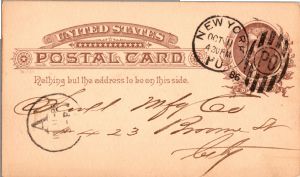 UNITED STATES
POSTAL CARD
Nothing but the address to be on this side.
NEW YORK
OCT 11
430 PM
86
PO
A
Mfg Co
# 423 Broome St
City